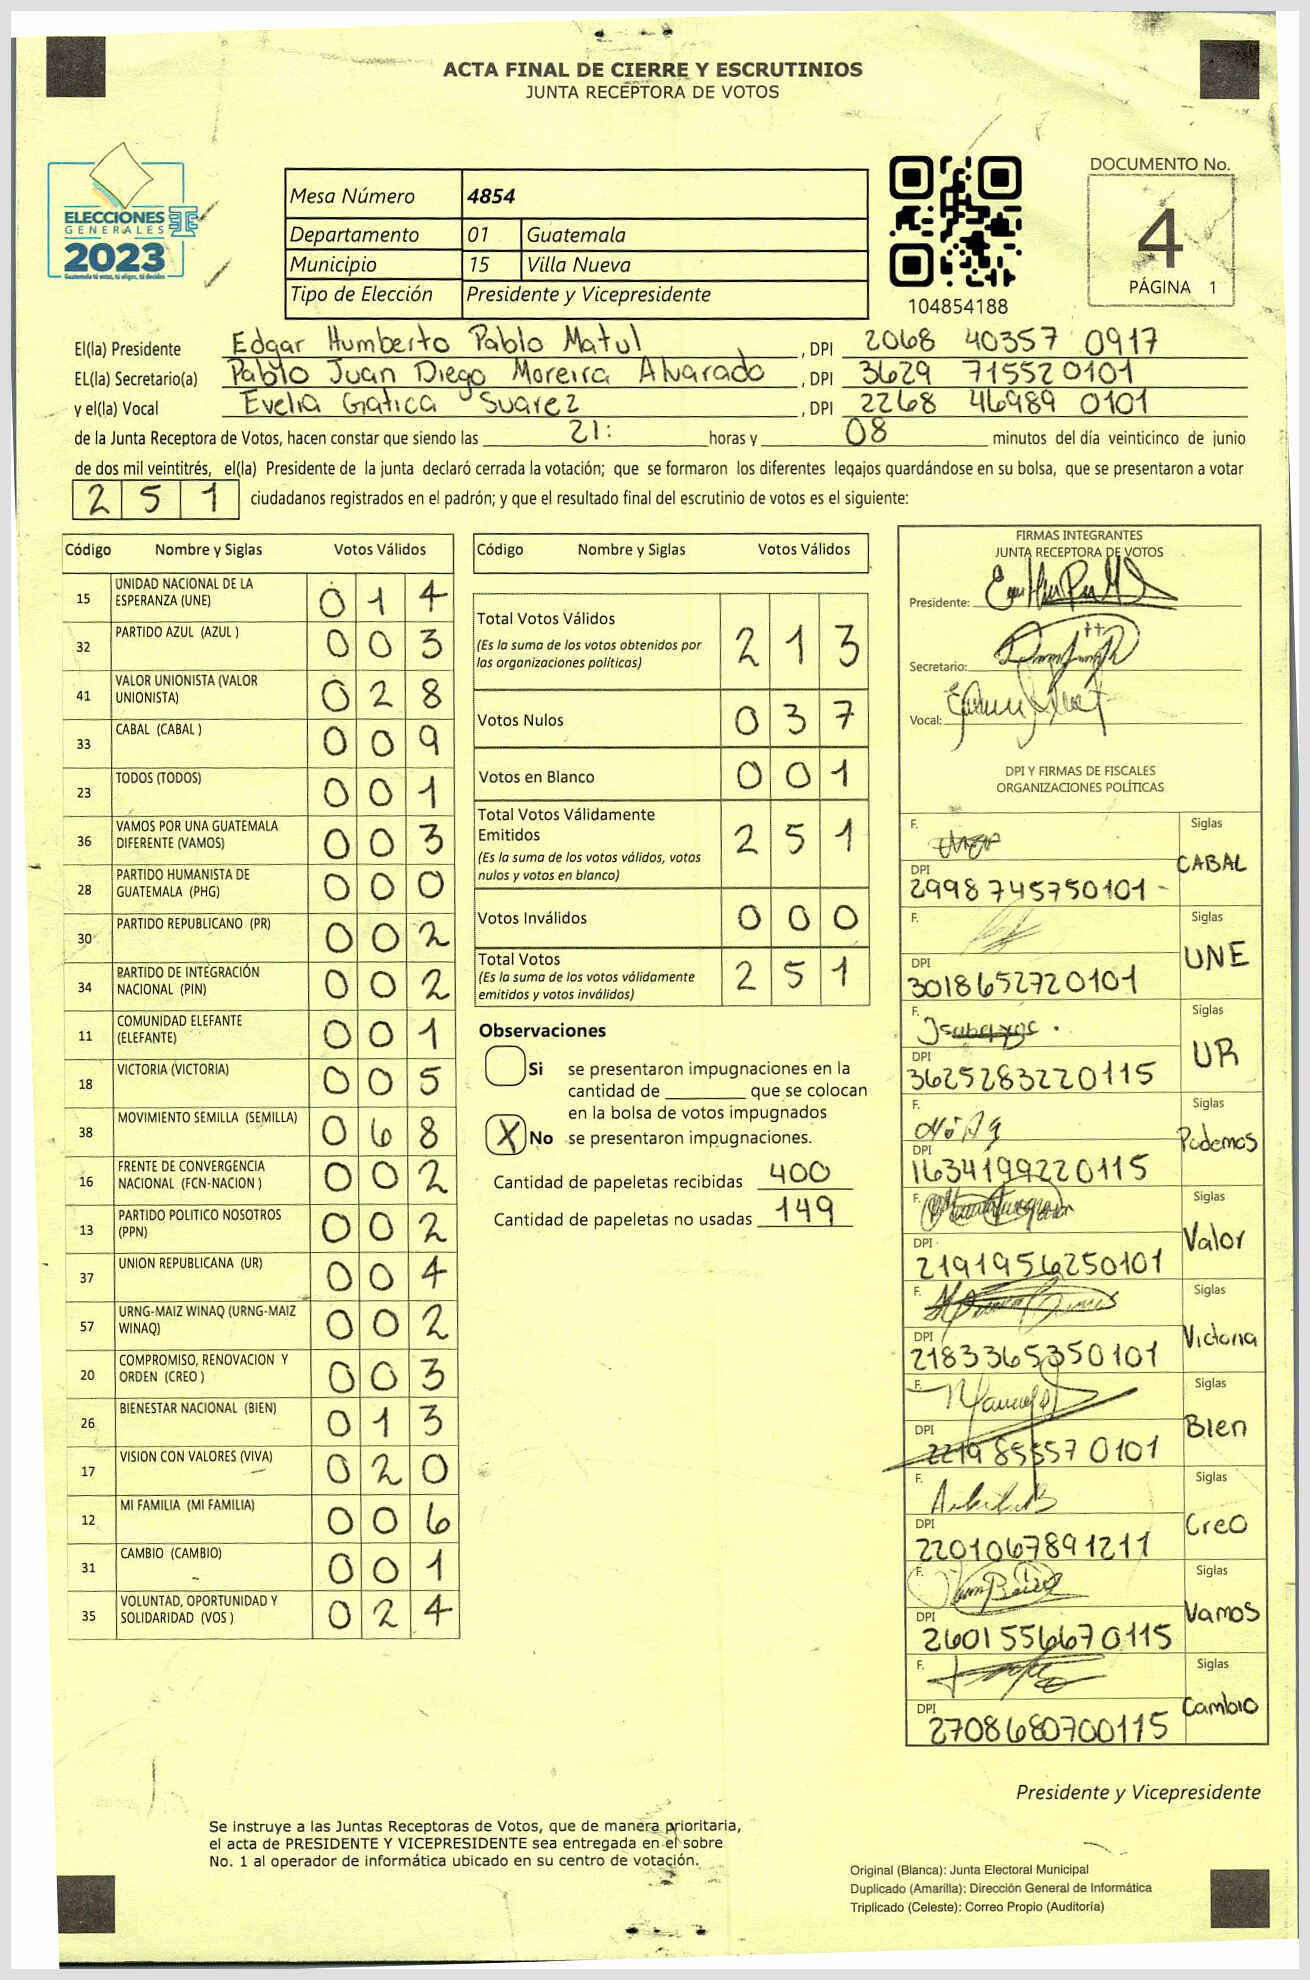 ACTA FINAL DE CIERRE Y ESCRUTINIOS
JUNTA RECEPTORA DE VOTOS
ELECCIONES
GENERALES
2023
Guatemala tú votas, tú eliges, tú decides
Mesa Número 4854
Departamento 01 Guatemala
Municipio 15 Villa Nueva
Tipo de Elección Presidente y Vicepresidente
104854188
DOCUMENTO No.
4
PÁGINA 1
El(la) Presidente Edgar Humberto Pablo Matul, DPI 2068 40357 0917
EL(la) Secretario(a) Pablo Juan Diego Moreira Alvarado, DPI 3629 71552 0101
y el(la) Vocal Evelia Gatica Suarez, DPI 2268 46989 0101
de la Junta Receptora de Votos, hacen constar que siendo las 21: horas y 08 minutos del día veinticinco de junio
de dos mil veintitrés, el(la) Presidente de la junta declaró cerrada la votación; que se formaron los diferentes legajos guardándose en su bolsa, que se presentaron a votar
251 ciudadanos registrados en el padrón; y que el resultado final del escrutinio de votos es el siguiente:
Código Nombre y Siglas Votos Válidos
15 UNIDAD NACIONAL DE LA ESPERANZA (UNE) 014
32 PARTIDO AZUL (AZUL ) 003
41 VALOR UNIONISTA (VALOR UNIONISTA) 028
33 CABAL (CABAL ) 009
23 TODOS (TODOS) 001
36 VAMOS POR UNA GUATEMALA DIFERENTE (VAMOS) 003
28 PARTIDO HUMANISTA DE GUATEMALA (PHG) 000
30 PARTIDO REPUBLICANO (PR) 002
34 PARTIDO DE INTEGRACIÓN NACIONAL (PIN) 002
11 COMUNIDAD ELEFANTE (ELEFANTE) 001
18 VICTORIA (VICTORIA) 005
38 MOVIMIENTO SEMILLA (SEMILLA) 068
16 FRENTE DE CONVERGENCIA NACIONAL (FCN-NACION ) 002
13 PARTIDO POLITICO NOSOTROS (PPN) 002
37 UNION REPUBLICANA (UR) 004
57 URNG-MAIZ WINAQ (URNG-MAIZ WINAQ) 002
20 COMPROMISO, RENOVACION Y ORDEN (CREO ) 003
26 BIENESTAR NACIONAL (BIEN) 013
17 VISION CON VALORES (VIVA) 020
12 MI FAMILIA (MI FAMILIA) 006
31 CAMBIO (CAMBIO) 001
35 VOLUNTAD, OPORTUNIDAD Y SOLIDARIDAD (VOS ) 024
Código Nombre y Siglas Votos Válidos
Total Votos Válidos 213
(Es la suma de los votos obtenidos por
las organizaciones políticas)
Votos Nulos 037
Votos en Blanco 001
Total Votos Válidamente
Emitidos 251
(Es la suma de los votos válidos, votos
nulos y votos en blanco)
Votos Inválidos 000
Total Votos 251
(Es la suma de los votos válidamente
emitidos y votos inválidos)
Observaciones
Si se presentaron impugnaciones en la
cantidad de ________ que se colocan
en la bolsa de votos impugnados
X No se presentaron impugnaciones.
Cantidad de papeletas recibidas 400
Cantidad de papeletas no usadas 149
FIRMAS INTEGRANTES
JUNTA RECEPTORA DE VOTOS
Presidente:
Secretario:
Vocal:
DPI Y FIRMAS DE FISCALES
ORGANIZACIONES POLÍTICAS
F. Siglas
DPI 2998745750101 - CABAL
F. Siglas
DPI 3018652720101 UNE
F. Siglas
DPI 3625283220115 UR
F. Siglas
DPI 1634199220115 Podemos
F. Siglas
DPI 2191956250101 Valor
F. Siglas
DPI 2183365350101 Victoria
F. Siglas
DPI 2219 85557 0101 Bien
F. Siglas
DPI 2201067891211 Creo
F. Siglas
DPI 2601556670115 Vamos
F. Siglas
DPI 2708680700115 Cambio
Presidente y Vicepresidente
Se instruye a las Juntas Receptoras de Votos, que de manera prioritaria,
el acta de PRESIDENTE Y VICEPRESIDENTE sea entregada en el sobre
No. 1 al operador de informática ubicado en su centro de votación.
Original (Blanca): Junta Electoral Municipal
Duplicado (Amarilla): Dirección General de Informática
Triplicado (Celeste): Correo Propio (Auditoría)